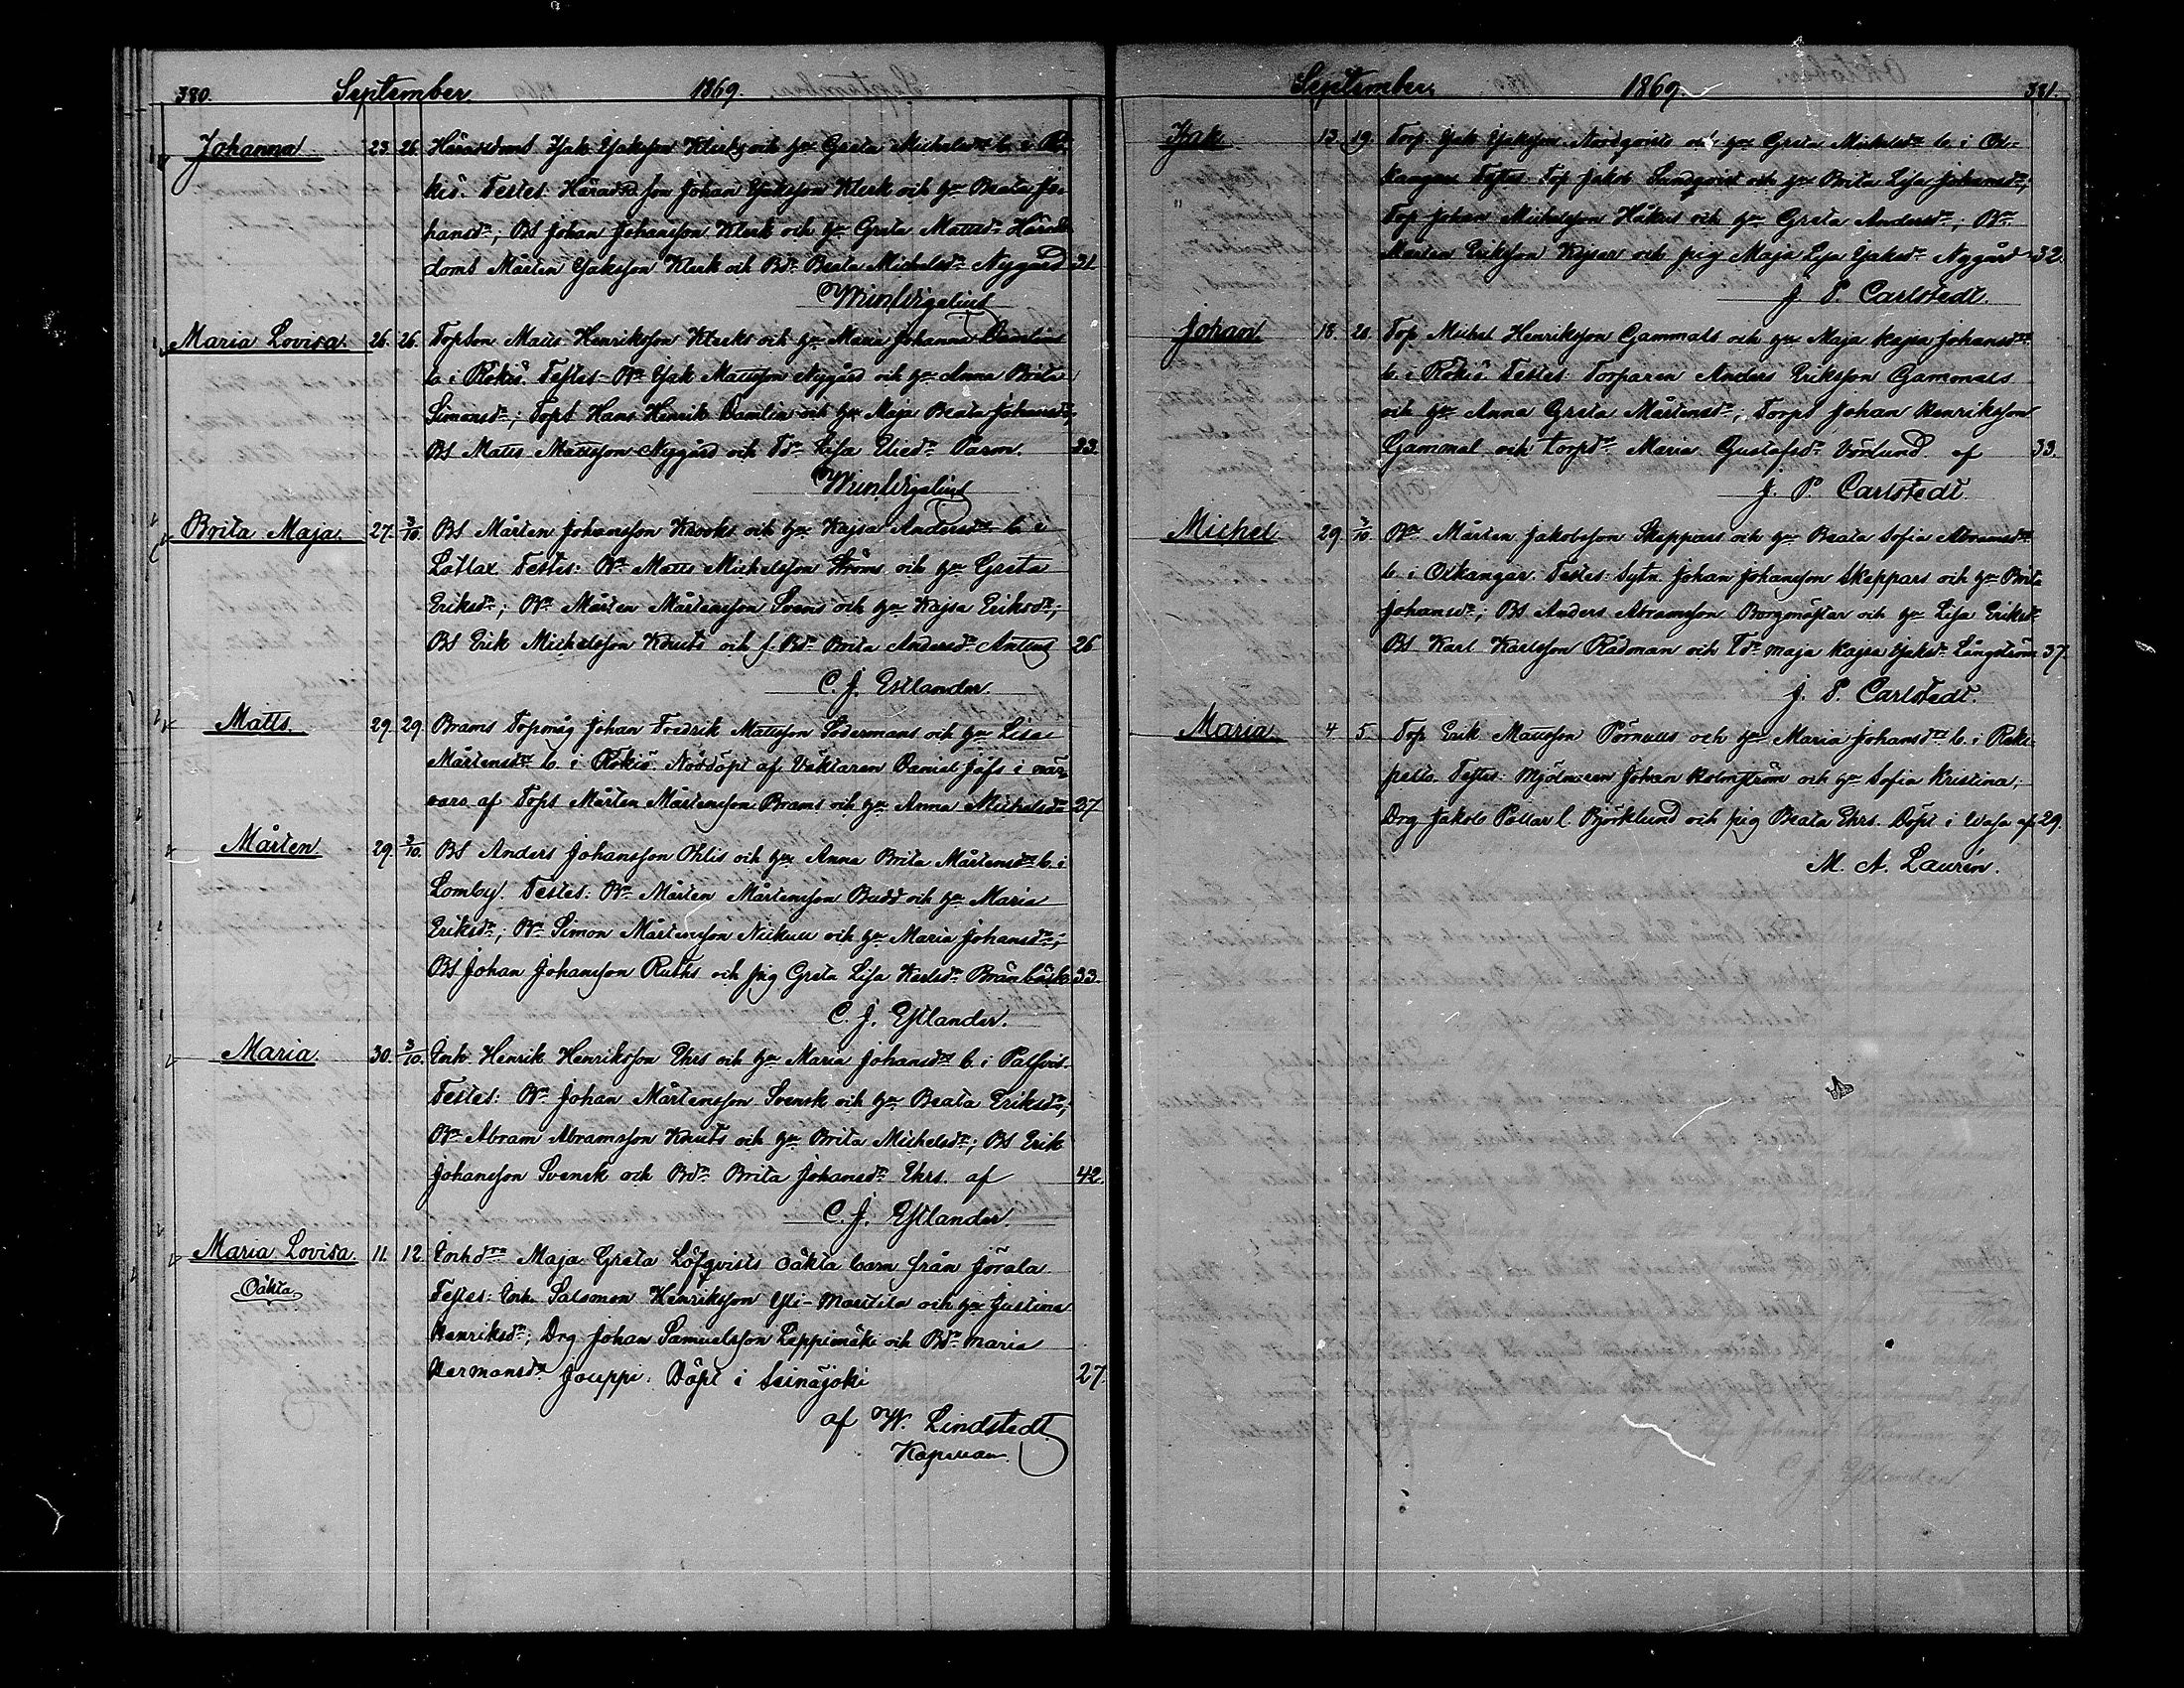 380. September. 1869.
Johanna 23. 26. Häradsdomst Isak Isaksson Klerks och h:u Greta Michelsd:r b. i Rö-
kiö. Testes: Häradsd:s son Johan Isaksson Klerk och h:u Beata Jo-
hansd:r; BS Johan Johansson Klerk och h:u Greta Mattsd:r Härads
domst Mårten Isaksson Klerk och Bd:r Beata Michelsd:r Nygård 31
Maria Lovisa. 26. 26. Torpson Matts Henriksson Klerks och h:u Maria Johanna Damlins
b. i Rökiö. Testes Bn Isak Mattsson Nygård och h:u Anna Brita
Simonsd:r; Torps Hans Henrik Damlin och h:u Maja Beata Johansd:r;
BS Matts Mattsson Nygård och Td:r Lisa Eliesd:r Parm. 33.
Brita Maja. 27. 3/10. BS Mårten Johansson Krooks och h:u Kajsa Andersd:r b. i
Lotlax Testes: Bn Matts Michelsson Ströms och h:u Greta
Eriksd:r; Bn Mårten Mårtensson Svens och h:u Kajsa Eriksd:r;
BS Erik Michelsson Knuts och f. Bd:r Brita Andersd:r Anteus 26
C. J. Estlander.
Matts. 29. 29. Brams Torpmåg Johan Fredrik Mattsson Södermans och h:u Lisa
Mårtensd:r b. i Rökiö Nöddöpt af Väktaren Daniel Jåfs i när-
varo af Torps Mårten Mårtensson Brams och h:u Anna Michelsd:r 27
Mårten 29. 3/10. BS Anders Johansson Ohlis och h:u Anna Brita Mårtensd:r b. i
Lomby. Testes: Bn Mårten Mårtensson Budd och h:u Maria
Eriksd:r; Bn Simon Mårtensson och h:u Maria Johansd:r;
BS Johan Johansson Ruths och pig Greta Lisa Karlsd:r Brännbäck 33.
C. J. Estlander.
Maria 30. 3/10. Inh Henrik Henriksson Ehrs och h:u Maria Johansd:r b. i Palfvis.
Testes: Bn Johan Mårtensson Svensk och h:u Beata Eriksd:r;
Bn Abram Abramsson Knuts och h:u Brita Michelsd:r; BS Erik
Johansson Svensk och Bd:r Brita Johansd:r Ehrs. af 42.
C. J. Estlander.
Maria Lovisa. 11. 12. Inhd:rs Maja Greta Löfqvists oäkta barn från Jörala
Oäkta.
Testes: Inh. Salomon Henriksson Yli-Marttila och h:u Justina
Henriksd:r; Drg Johan Samuelsson Leppimäki och Bd:r Maria
Hermansd:r Jouppi. Döpt i Seinäjoki 27.
af W. Lindstedt.
Kapellan.
September 1869. 381.
Isak 13. 19. Torp. Isak Isaksson Nordqvists och h:u Greta Michelsd:r b. i Ox-
kangar Testes: Torp Jakob Sundqvist och h:u Brita Lisa Johansd:r;
Torp Johan Michelsson Håkus och h:u Greta Andersd:r; Bn
Mårten Eriksson Kejsar och pig Maja Lisa Isaksd:r Nygård 32.
J. P. Carlstedt.
Johan. 18. 20. Torp Michel Henriksson Gammals och h:u Maja Kajsa Johansd:r
b. i Rökiö Testes Torparen Anders Eriksson Gammals
och h:u Anna Greta Mårtensd:r; Torps Johan Henriksson
Gammal och torpd:r Maria Gustafsd:r Vörlund af 33.
J. P. Carlstedt
Michel 29 3/10. Bn Mårten Jakobsson Skeppars och h:u Beata Sofia Abramsd:r
b. i Oxkangar. Testes: Sytn. Johan Johansson Skeppars och h:u Brita
Johansd:r; BS Anders Abramsson Borgmästar och h:u Lisa Eriksd:r
BS Karl Karlsson Rådman och Td:r Maja Kajsa Isaksd:r Långström 37.
J. P. Carlstedt.
Maria 4 5. Torp Erik Mattsson Pörnulls och h:u Maria Johansd:r b. i Reki-
pelto. Testes: Mjölnaren Johan Holmström och h:u Sofia Kristina;
Drg Jakob Pollar l. Björklund och pig Beata Ehrs. Döpt i Wasa af 29.
M. A. Laurén.